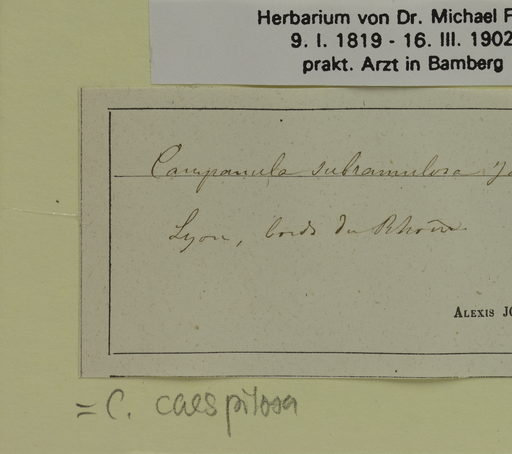 Herbarium von Dr. Michael F
9. I. 1819 - 16. III. 1902
prakt. Arzt in Bamberg
Campanula subramulosa
Lyon, bords du Rhône
ALEXIS JO
= C. caespitosa